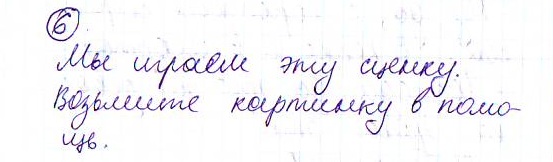 6
Мы играем эту сценку.
Возьмите картинку в помо-
щь.